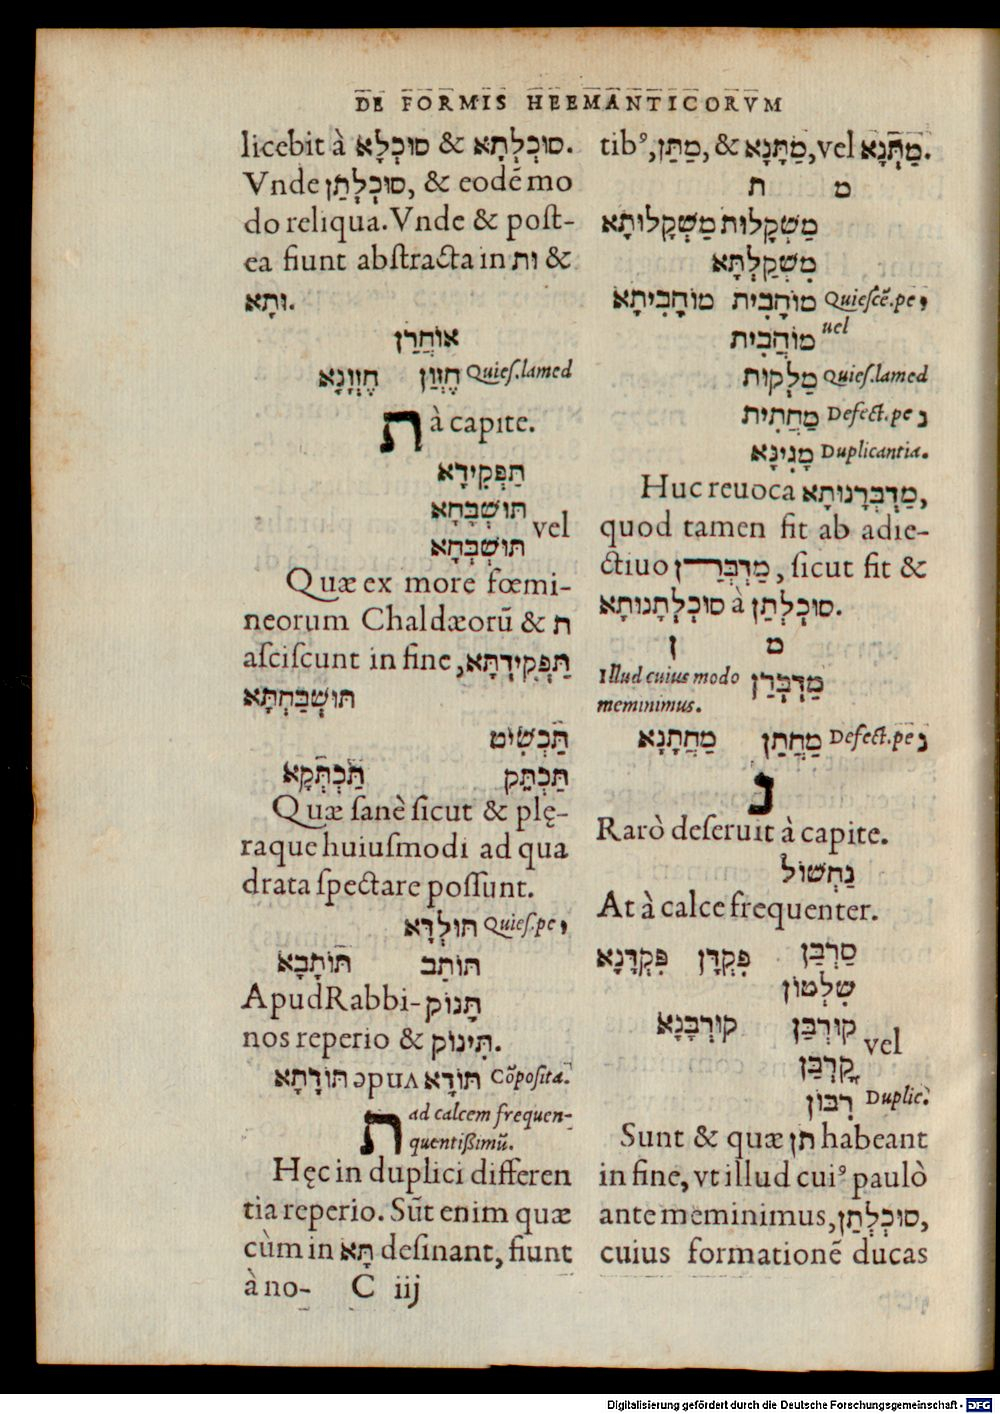 DE FORMIS HEEMANTICORVM
licebit à סוּכְלָא & סוּכְלְתָא.
Vnde סוּכְלְתַן, & eodē mo
do reliqua. Vnde & post-
ea fiunt abstracta in וּת &
וּתָא.
אוֹחֲרַן
חֶזְוָנָא חֶזְוַן Quies. lamed
ת à capite.
תַּפְקִידָא
תּוּשְׁבָּחָא
vel
תּוּשְׁבְּחָא
Quæ ex more fœmi-
neorum Chaldæorū & ת
asciscunt in fine, תַּפְקִידְתָּא
תּוּשְׁבַּחְתָּא
תַּכְשִׁיט
תַּכְתֵּק תַּכְתְּקָא
Quæ sanè sicut & plę-
raque huiusmodi ad qua
drata spectare possunt.
תּוּלְדָּא Quies. pe י
תּוֹתַב תּוֹתָבָא
Apud Rabbi- תָּנוֹק
nos reperio & תִּינוֹק.
תּוֹדָא תּוֹדָתָא Cōposita.
ת ad calcem frequen-
quentißimū.
Hęc in duplici differen
tia reperio. Sūt enim quæ
cùm in תָּא desinant, fiunt
à no- C iij
tibꝰ, מַתַּן, & מַתָּנָא, vel מַתְּנָא.
מ ת
מַשְׁקָלוּת מַשְׁקָלוּתָא
מִשְׁקַלְתָּא
מוֹהָבִית מוֹהָבִיתָא Quiescē. pe י
מוֹהֲבִית uel
מַלְקוּת Quies. lamed
מַחֲתִית Defect. pe נ
מָגִינָּא Duplicantia.
Huc reuoca מַדְבְּרָנוּתָא,
quod tamen fit ab adie-
ctiuo מַדְבְּרַן, sicut fit &
סוּכְלְתָנוּתָא à סוּכְלְתַן.
מ ן
Illud cuius modo מַדְבְּרַן
meminimus.
מַחֲתַן מַחֲתָנָא Defect. pe נ
נ
Rarò deseruit à capite.
נַחְשׁוֹל
At à calce frequenter.
סַרְבַּן פִּקְדָּן פִּקְדָּנָא
שִׁלְטוֹן
קוּרְבַּן קוּרְבָּנָא
vel
קָרְבַּן
רִבּוֹן Duplic.
Sunt & quæ תן habeant
in fine, vt illud cuiꝰ paulò
ante meminimus, סוּכְלְתַן,
cuius formationē ducas
Digitalisierung gefördert durch die Deutsche Forschungsgemeinschaft - DFG